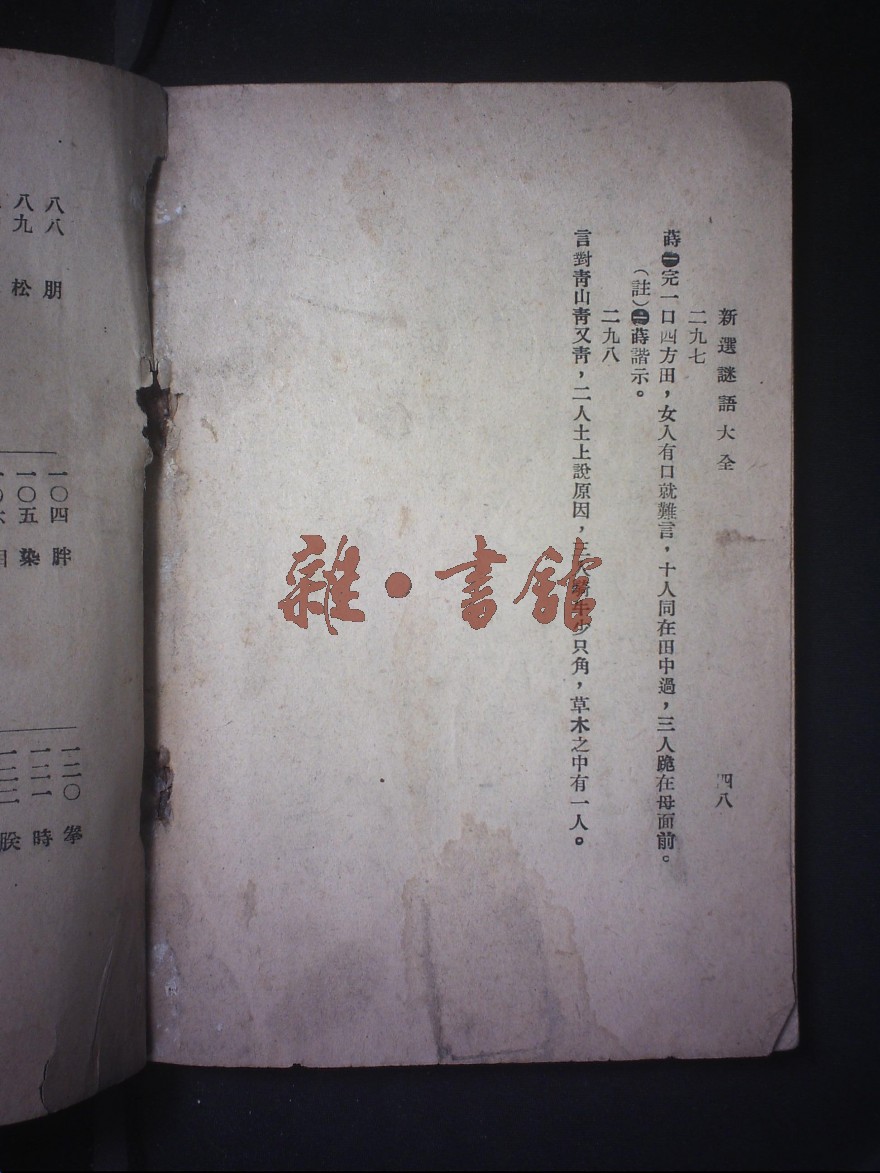 新選謎語大全
四八
二九七
蒔㊀完一口四方田，女人有口就難言，十人同在田中過，三人跪在母面前。
（註）㊀蒔諧示。
二九八
言對青山青又青，二人土上說原因，三人騎牛少只角，草木之中有一人。
雜·書舘
八八 朋
八九 松
一〇四 胖
一〇五 染
一二〇 拳
一二一 時
一二二 朕